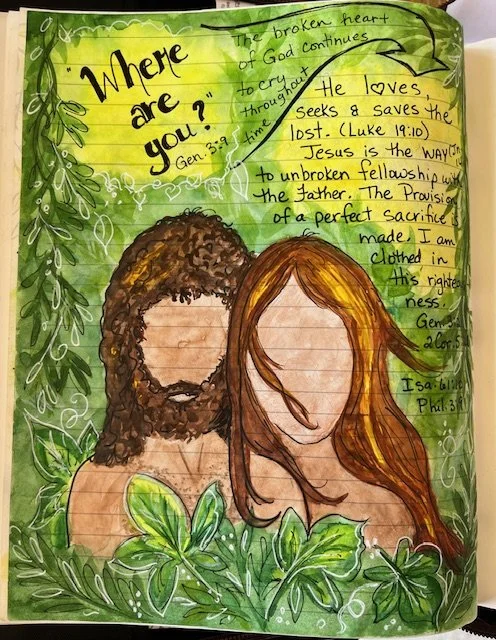 "Where
are
you?"
Gen. 3:9
The broken heart
of God continues
to cry
throughout
time
He loves,
seeks & saves the
lost. (Luke 19:10)
Jesus is the WAY
to unbroken fellowship
the Father. The
of a perfect sacrifice
made. I am
clothed in
His
ness.
Gen. 3:
2 Cor. 5
Isa. 61:
Phil. 3:9